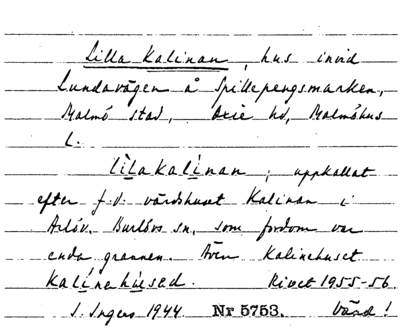 Lilla Kalinan, hus invid
Lundavägen å Spillepengsmarken,
Malmö stad, Oxie hd, Malmöhus
L.
lìlakalínan; uppkallat
efter f.d. värdshuset Kalinan i
Arlöv, Burlövs sn, som fordom var
enda grannen. Även Kalinehuset
kalínehùsed. Rivet 1955-56.
I. Ingers 1944 Nr 5753. Vänd!